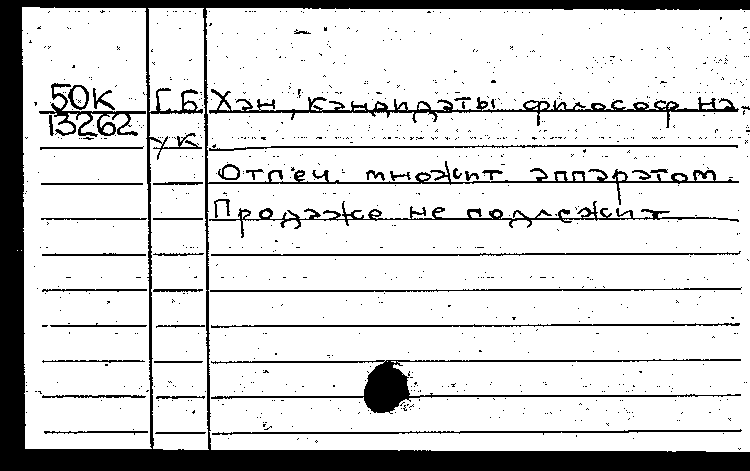 50К Г.Б. Хэн, кандидаты философ. на.
13262 УК
Отпеч. множит. аппаратом.
Продаже не подлежит